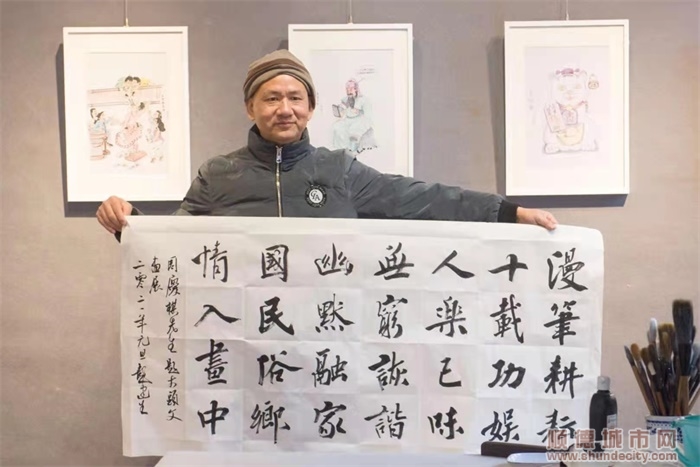 漫筆耕耘
十載功娛
人樂己味
無窮詼諧
幽默融家
國民俗鄉
情入畫中
先生
画展
二零二一年元旦
顺德城市网
www.shundecity.com